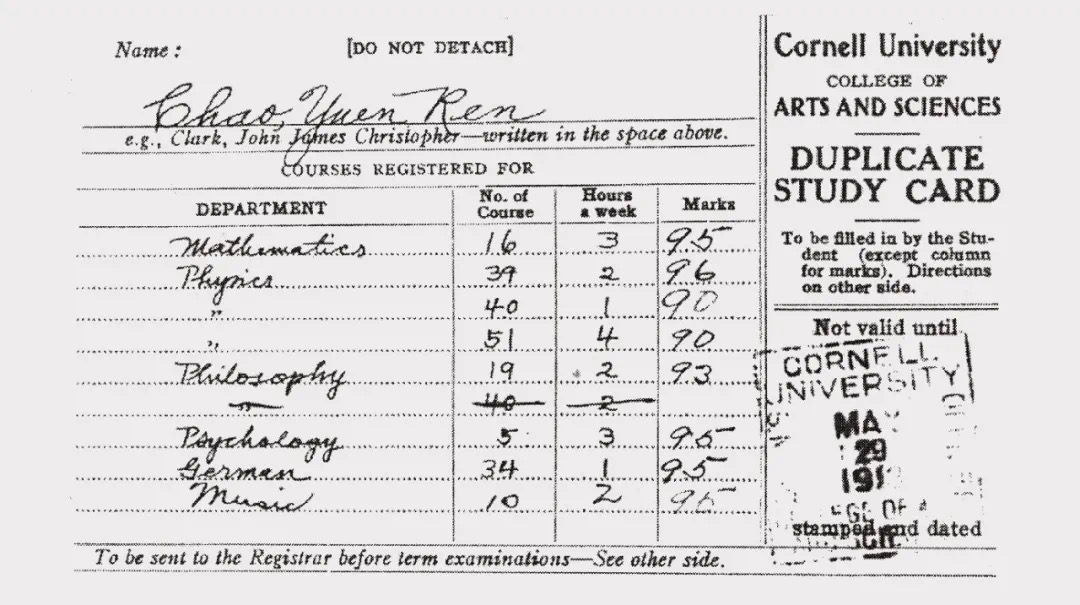 Name :
[DO NOT DETACH]
Chao, Yuen Ren
e.g., Clark, John James Christopher—written in the space above.
COURSES REGISTERED FOR
DEPARTMENT No. of Course Hours a week Marks
Mathematics 16 3 95
Physics 39 2 96
" 40 1 90
" 51 4 90
Philosophy 19 2 93
" 40 2
Psychology 5 3 95
German 34 1 95
Music 10 2 95
To be sent to the Registrar before term examinations—See other side.
Cornell University
COLLEGE OF
ARTS AND SCIENCES
DUPLICATE
STUDY CARD
To be filled in by the Stu-
dent (except column
for marks). Directions
on other side.
Not valid until
CORNELL
UNIVERSITY
29
stamped and dated